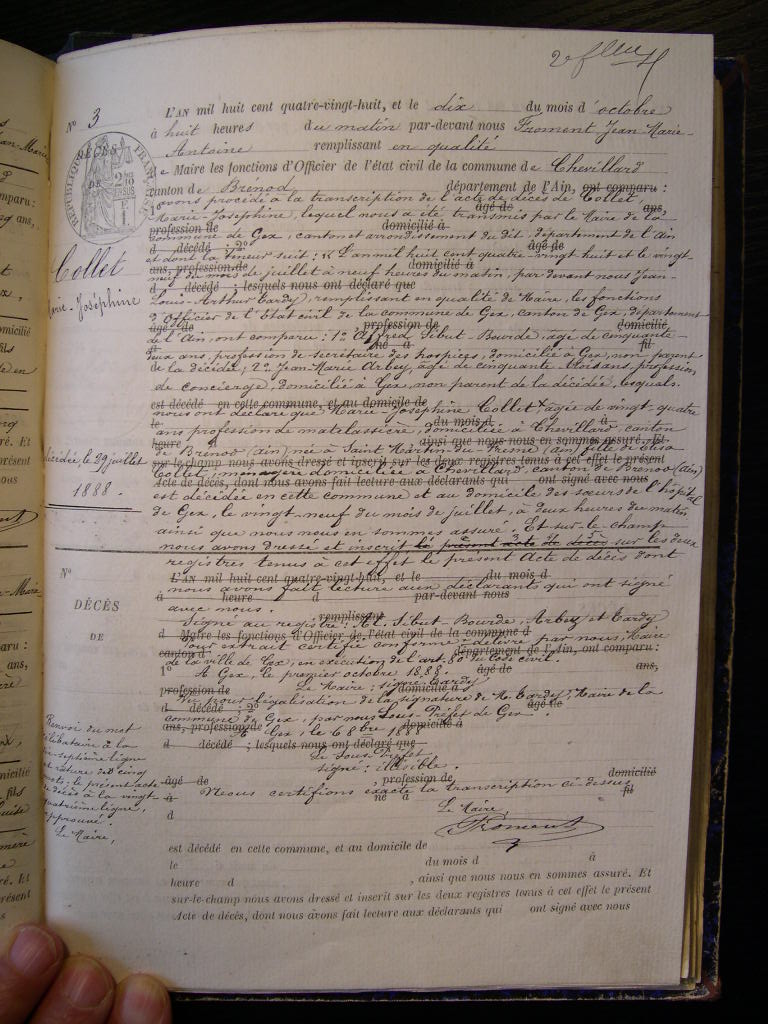 2e f
N° 3
L'AN mil huit cent quatre-vingt-huit, et le dix du mois d'octobre
à huit heures du matin par-devant nous Froment Jean-Marie-
Antoine remplissant en qualité
de Maire les fonctions d'Officier de l'état civil de la commune de Chevillard
canton de Brénod département de l'Ain, ont comparu :
avons procédé à la transcription de l'acte de décès de Collet,
1° âgé de ans,
Marie-Joséphine, lequel nous a été transmis par le Maire de la
profession de domicilié à
commune de Gex, canton et arrondissement du dit, département de l'Ain
d décédé ; 2° âgé de
et dont la teneur suit : L'an mil huit cent quatre-vingt huit et le vingt-
ans, profession de domicilié à
neuf du mois de juillet à neuf heures du matin, par devant nous Jean-
d décédé ; lesquels nous ont déclaré que
Louis-Arthur Cardy, remplissant en qualité de Maire, les fonctions
d'Officier de l'Etat civil de la commune de Gex, canton de Gex, département
âgé de profession de domicilié
de l'Ain, ont comparu : 1° Alfred Sébut-Bourde, âgé de cinquante-
à né à fil
deux ans, profession de secrétaire des hospices, domicilié à Gex, non parent
de la décédée ; 2° Jean-Marie Arbey, âgé de cinquante-trois ans, profession
de concierge, domicilié à Gex, non parent de la décédée, lesquels
est décédé en cette commune, et au domicile de
nous ont déclaré que Marie-Joséphine Collet, âgée de vingt-quatre
le du mois d à
ans profession de matelassière, domiciliée à Chevillard, canton
heure d ainsi que nous nous en sommes assuré. Et
de Brénod (ain) née à Saint Martin-du-Fresne (ain) fille de Elisa
sur-le-champ nous avons dressé et inscrit sur les deux registres tenus à cet effet le présent
Collet, domiciliée à Chevillard, canton de Brénod (ain)
Acte de décès, dont nous avons fait lecture aux déclarants qui ont signé avec nous
est décédée en cette commune et au domicile des sœurs de l'hôpital
de Gex, le vingt-neuf du mois de juillet, à deux heures du matin
ainsi que nous nous en sommes assuré. Et sur le champ
nous avons dressé et inscrit le présent acte de décès sur les deux
registres tenus à cet effet le présent Acte de décès dont
L'AN mil huit cent quatre-vingt-huit, et le du mois d
nous avons fait lecture aux déclarants qui ont signé
à heure d par-devant nous
avec nous.
Signé au registre : Al. Sébut-Bourde, Arbey et Cardy
remplissant
d Maire les fonctions d'Officier de l'état civil de la commune d
Pour extrait certifié conforme délivré par nous, Maire
canton d département de l'Ain, ont comparu :
de la ville de Gex, en exécution de l'art. 80 du Code civil.
1° âgé de ans,
A Gex, le premier octobre 1888.
Le Maire : signé Cardy
profession de domicilié à
Vu pour légalisation de la signature de M. Cardy, Maire de la
d décédé ; 2° âgé de
commune de Gex, par nous Sous-Préfet de Gex.
ans, profession de domicilié à
A Gex, le 6 8bre 1888
d décédé ; lesquels nous ont déclaré que
Le Sous-Préfet,
signé : illisible.
âgé de , profession de domicilié
Nous certifions exacte la transcription ci-dessus
à né à fil
Le Maire,
d
Froment
est décédé en cette commune, et au domicile de
le du mois d à
heure d , ainsi que nous nous en sommes assuré. Et
sur-le-champ nous avons dressé et inscrit sur les deux registres tenus à cet effet le présent
Acte de décès, dont nous avons fait lecture aux déclarants qui ont signé avec nous
DÉCÈS
DE
RÉPUBLIQUE FRANÇ
Collet
Marie-Joséphine
décédée, le 29 juillet
1888.
N°
DÉCÈS
DE
Renvoi du mot
célibataire à la
septième ligne
et rature de cinq
mots : le présent acte
de décès à la vingt-
quatrième ligne,
approuvé.
Le Maire,